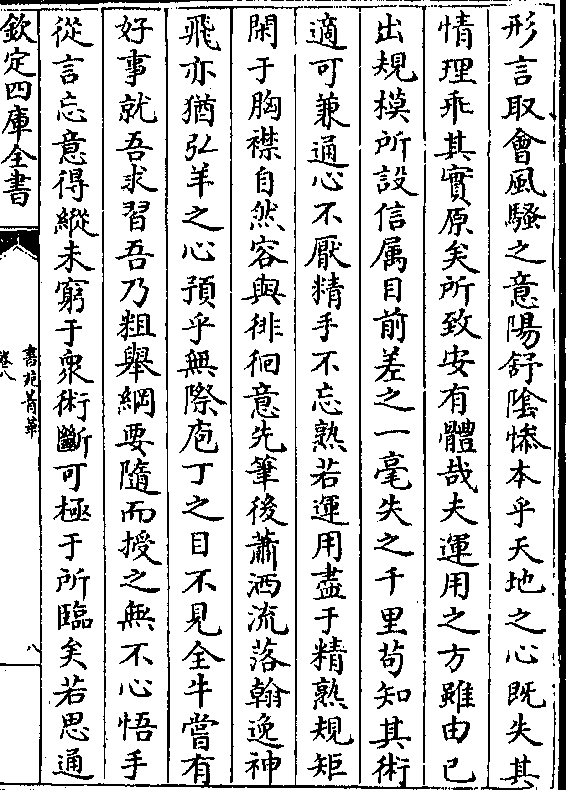 形言取會風騷之意陽舒陰慘本乎天地之心既失其
情理乖其實原矣所致安有體哉夫運用之方雖由己
出規模所設信属目前差之一毫失之千里茍知其術
適可兼通心不厭精手不忘熟若運用盡于精熟規矩
閑于胸襟自然容與徘徊意先筆後蕭洒流落翰逸神
飛亦猶弘羊之心預乎無際庖丁之目不見全牛嘗有
好事就吾求習吾乃粗舉綱要隨而授之無不心悟手
從言忘意得縱未窮于衆術斷可極于所臨矣若思通
欽定四庫全書
書苑菁華
卷八
八